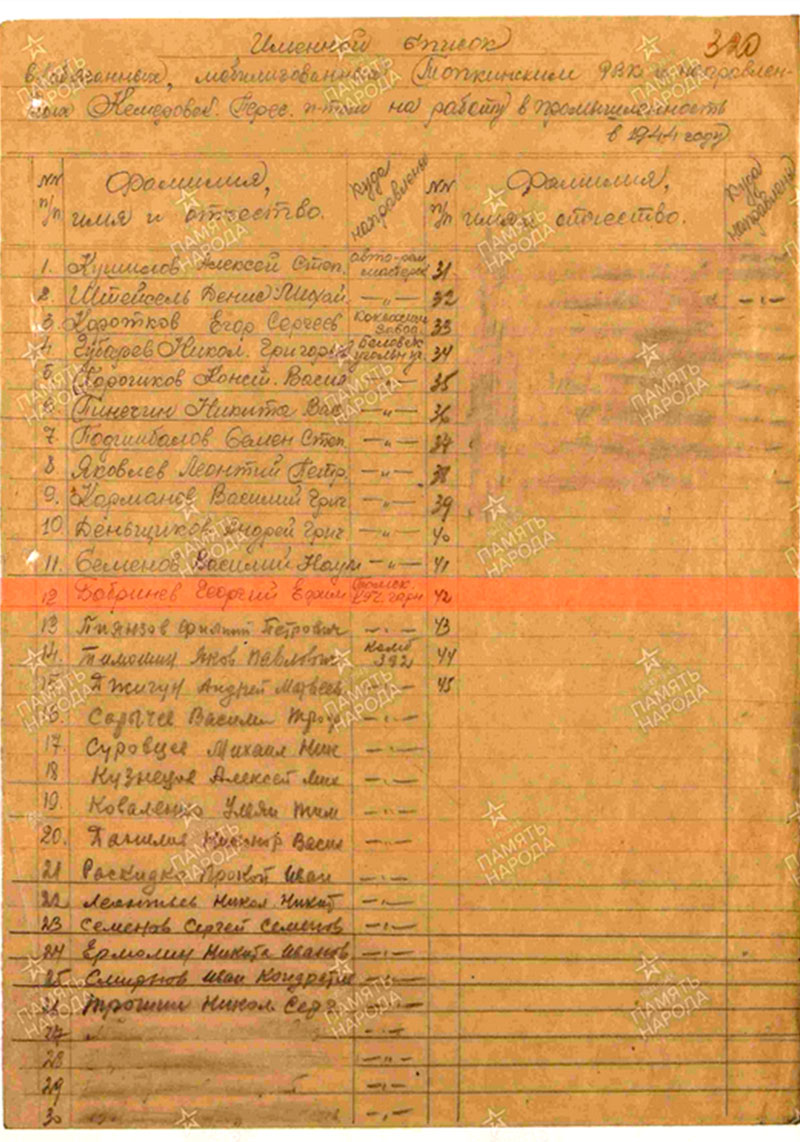 Именной список
330
в/обязанных, мобилизованных Топкинским РВК и направлен-
ных Кемеровск. Перес. п-том на работу в промышленность
в 1944 году
NN п/п Фамилия, имя и отчество. Куда направлены NN п/п Фамилия, имя и отчество. Куда направлены
1. Алексей Степ. авто-рем. мастерск 31
2. Штейсель Денис Михай —„— 32 —„—
3. Коротков Егор Сергеев Коксохим завод 33
4. Зубарев Никол. Григорь Беловск угольн 34
5. Васил —„— 35
6. Пинечин Никита Вас —„— 36
7. Семен Степ —„— 37
8. Яковлев Леонтий Петр. —„— 38
9. Карманов Василий Григ —„— 39
10 Деньщиков Андрей Григ —„— 40
11. Семенов Василий Наум —„— 41
12 Бобринев Георгий Ефим 392 гарн 42
13 Петрович —„— 43
14. Тимошин Яков Павлович 392 44
15 Джигун Андрей Матвеев —„— 45
16. Сарычев Василий —„—
17. Суровцев Михаил Ник —„—
18 Кузнецов Алексей —„—
19. Коваленко Ульян Тим —„—
20. Данилин Васил —„—
21 Раскидко Прокоп Иван —„—
22 Леонтьев Никол Никит —„—
23 Семенов Сергей Семенов —„—
24 Ермолин Никита Иванов —„—
25 Смирнов Иван Кондратье —„—
26 Трошин Никол Серг —„—
27 —„—
28 —„—
29 —„—
30 —„—
ПАМЯТЬ НАРОДА